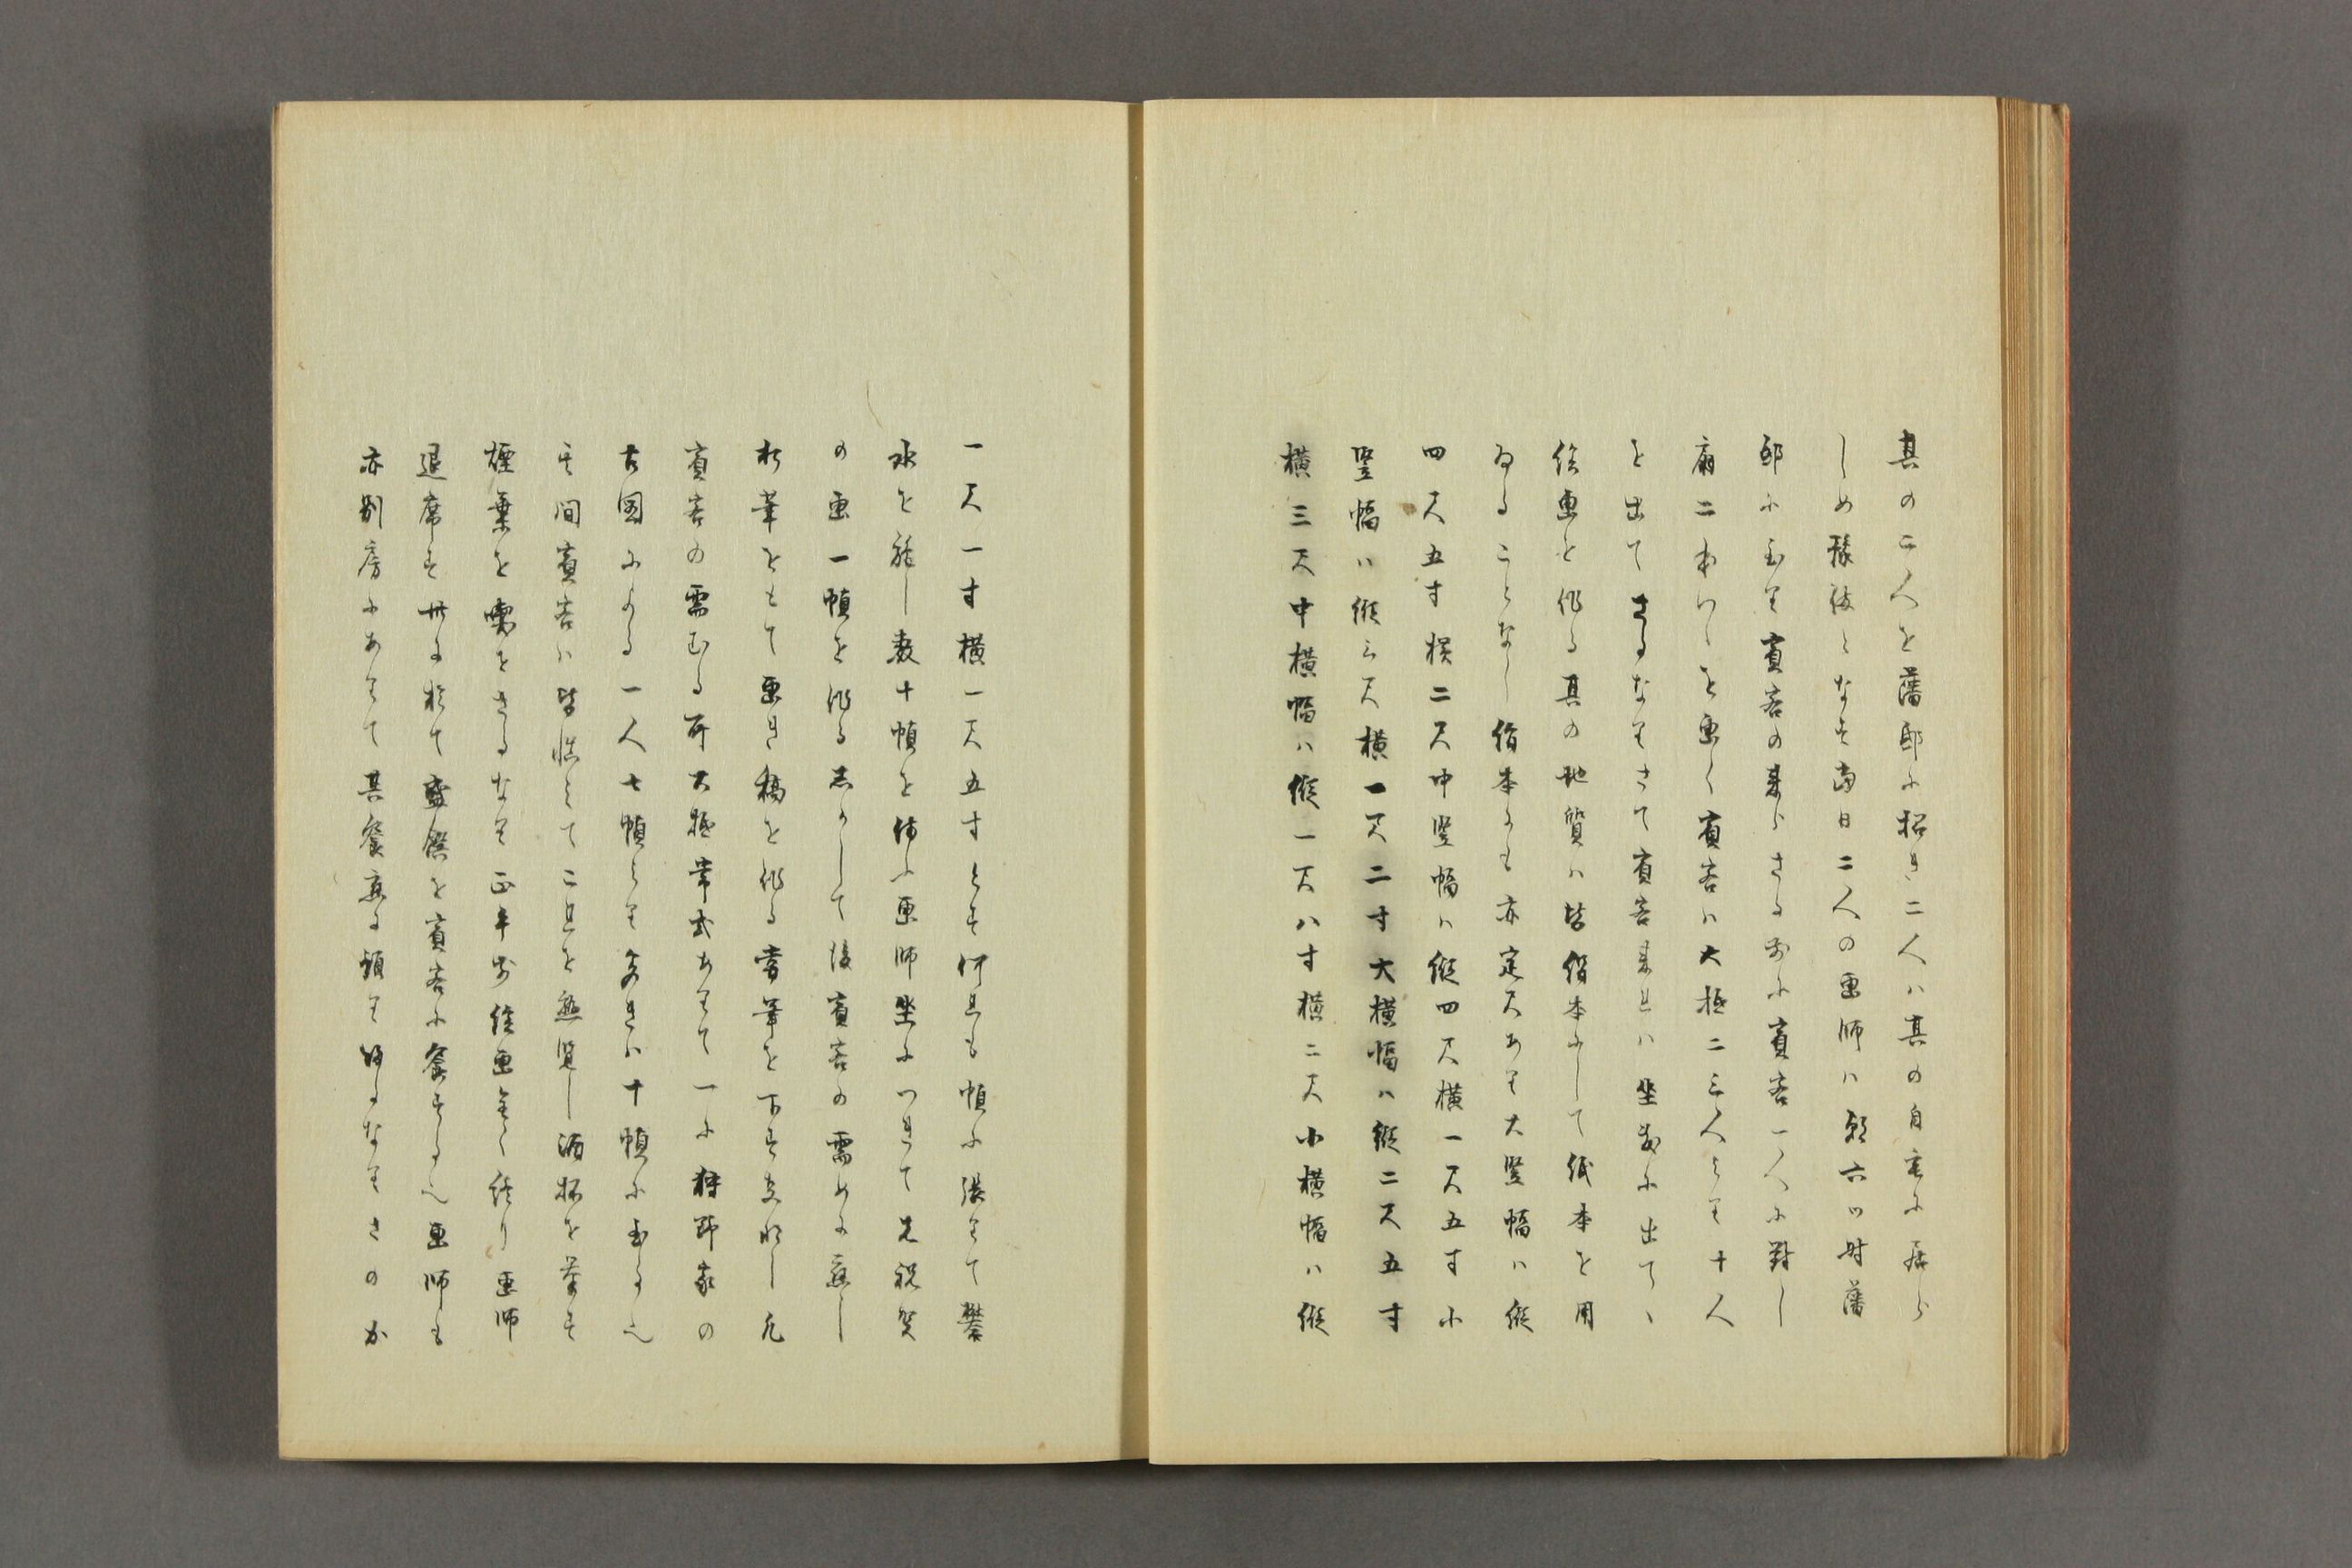 其の二人を藩邸に招き二人ハ其の自宅に居ら
しめ豫後となす當日二人の画師ハ朝六ツ時藩
邸に至り賓客の来らさる前に賓客一人に對し
扇二本つゝを画く賓客ハ大抵二三人より十人
を出てさるなりさて賓客来れハ坐敷に出てゝ
絵画を作る其の地質ハ皆絹本にして紙本を用
ゐることなし絹本にも亦定尺あり大竪幅ハ縦
四尺五寸横二尺中竪幅ハ縦四尺横一尺五寸小
竪幅ハ縦三尺横一尺二寸大横幅ハ縦二尺五寸
横三尺中横幅ハ縦一尺八寸横二尺小横幅ハ縦
一尺一寸横一尺五寸とす何れも幀に張りて礬
水を施し数十幀を備ふ画師坐につきて先祝賀
の画一幀を作る志かして後賓客の需めに應し
杉葉をもて画き稿を作る當筆を下す支那し凡
賓客の需むる所大抵常式ありて一に狩野家の
古図による一人七幀より多きハ十幀に至る也
其間賓客ハ皆恁りてこれを熟覧し酒杯を荤す
煙葉を喫せさるなり正午前絵画全く終り画師
退席す此に於て盛饌を賓客に饗する也画師も
亦別房にありて其饗應に預り帰るなりさのか